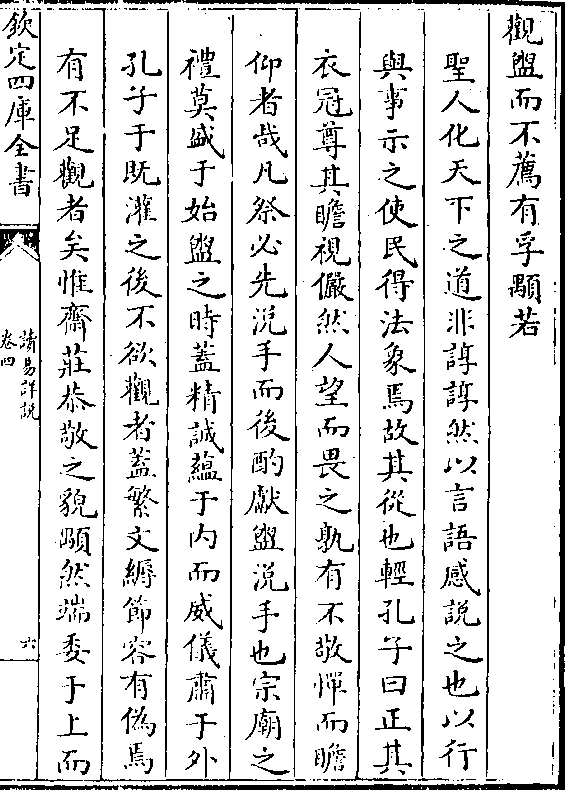 觀盥而不薦有孚顒若
聖人化天下之道非諄諄然以言語感說之也以行
與事示之使民得法象焉故其從也輕孔子曰正其
衣冠尊其瞻視儼然人望而畏之孰有不敬憚而瞻
仰者哉凡祭必先涚手而後酌獻盥涚手也宗廟之
禮莫盛于始盥之時蓋精誠蘊于内而威儀肅于外
孔子于既灌之後不欲觀者蓋繁文縟節容有偽焉
有不足觀者矣惟齋莊恭敬之貌顒然端委于上而
欽定四庫全書
讀易詳説
卷四
六